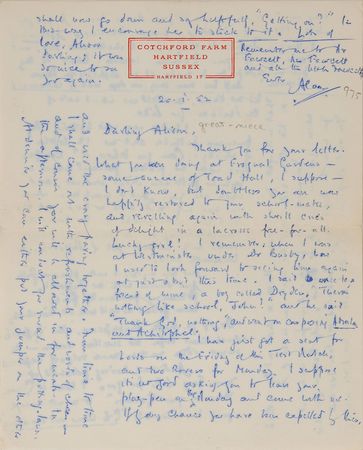 COTCHFORD FARM
HARTFIELD
SUSSEX
HARTFIELD 17
20.5.52
great-niece
Darling Alison,
Thank you for your letter.
What you were doing at Gardens —
some of Toad Hall, I suppose —
I don't know, but doubtless you are now
happily restored to your school-mates,
and revelling again with shrill cries
of delight in a lacrosse free-for-all.
Lucky girl! I remember, when I was
at Westminster under Dr Busby, how
I used to look forward to seeing him again
at just about this time. I said once to a
friend of mine, a boy called Dryden, "There's
nothing like school, John!" and he said
"Thank God, nothing," and went on composing Absalom
and Achitophel.
I have just got a seat for
Lords on the Friday of the Test Match,
and two Rovers for Monday. I suppose
it's no good asking you to leave your
play-pen on Monday and come with us.
If by any chance you have been expelled by then,
and the easy paving together. From time to time
I shall come out with refreshments and words of cheer —
and of course you will be allowed in for meals. In
the afternoon I will you round the putting-lawn.
you have either put your jumper on the other
shall now go down and say helpfully, "Getting on?" In
this way I encourage her to stick to it. Lots of
love, Alison
darling; it was
so nice to see
you again.
Remember me to Dr
Fawcett, Mrs Fawcett
and all the little Fawcetts
Ever
Alan
975